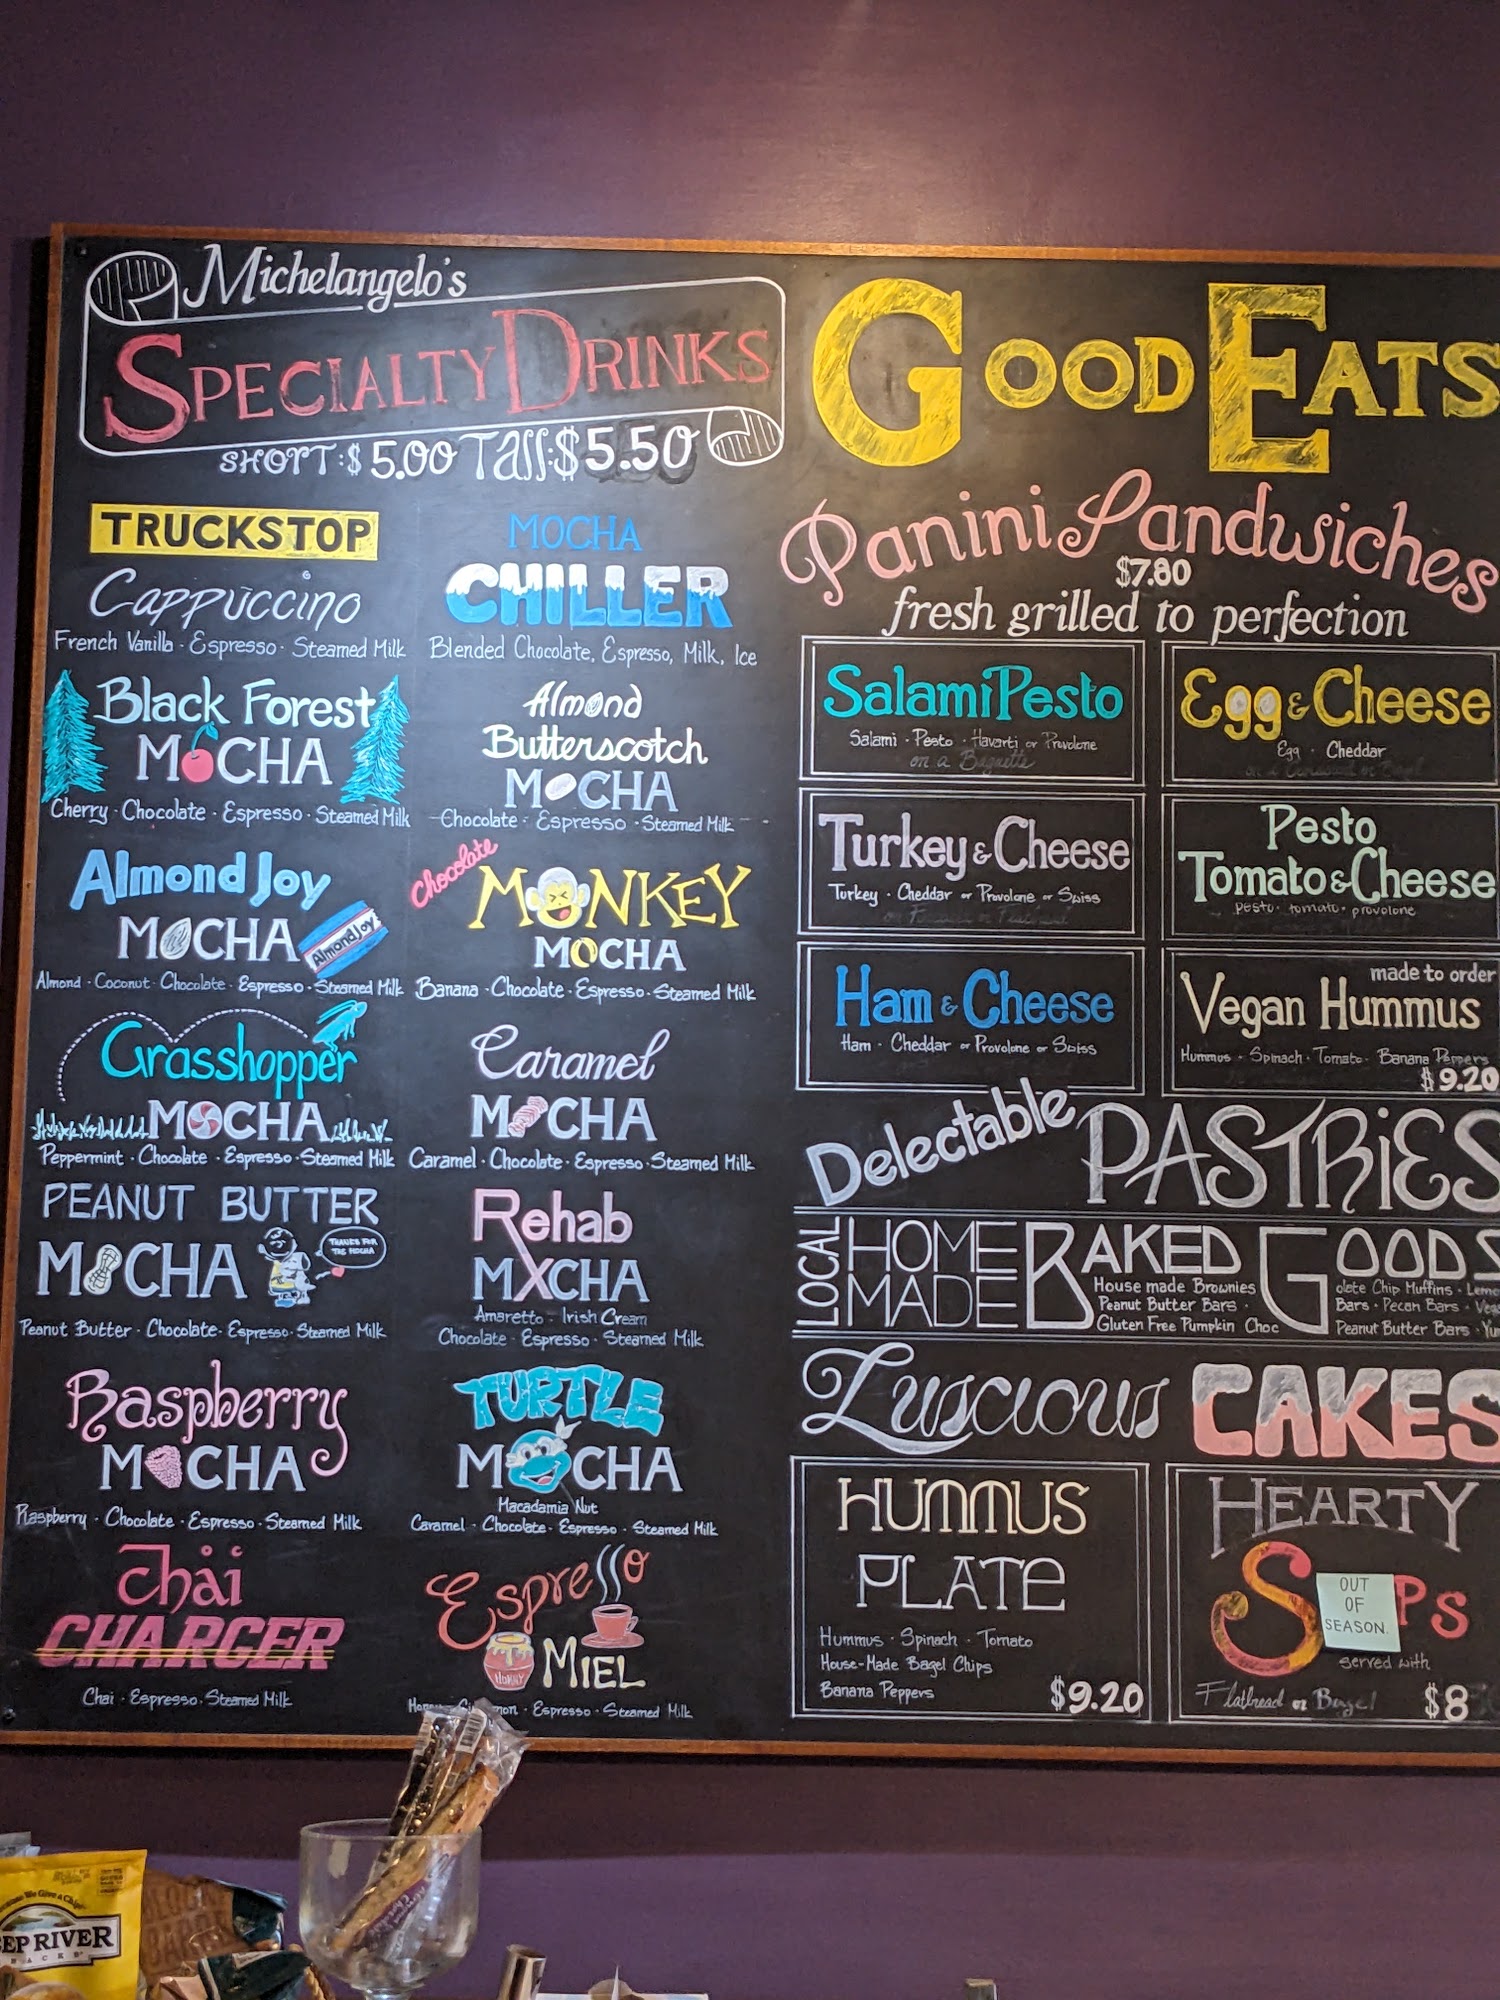 Michelangelo's
SPECIALTY DRINKS
SHORT:$5.00 Tall:$5.50
TRUCKSTOP
Cappuccino
French Vanilla · Espresso · Steamed Milk
Black Forest
MOCHA
Cherry · Chocolate · Espresso · Steamed Milk
Almond Joy
MOCHA
Almond Joy
Almond · Coconut · Chocolate · Espresso · Steamed Milk
Grasshopper
MOCHA
Peppermint · Chocolate · Espresso · Steamed Milk
PEANUT BUTTER
MOCHA
THANKS FOR
THE MOCHA
Peanut Butter · Chocolate · Espresso · Steamed Milk
Raspberry
MOCHA
Raspberry · Chocolate · Espresso · Steamed Milk
Chai
CHARGER
Chai · Espresso · Steamed Milk
MOCHA
CHILLER
Blended Chocolate, Espresso, Milk, Ice
Almond
Butterscotch
MOCHA
Chocolate · Espresso · Steamed Milk
Chocolate
MONKEY
MOCHA
Banana · Chocolate · Espresso · Steamed Milk
Caramel
MOCHA
Caramel · Chocolate · Espresso · Steamed Milk
Rehab
MXCHA
Amaretto · Irish Cream
Chocolate · Espresso · Steamed Milk
TURTLE
MOCHA
Macadamia Nut
Caramel · Chocolate · Espresso · Steamed Milk
Espresso
MIEL
HUNNY
· Espresso · Steamed Milk
GOOD EATS
Panini Sandwiches
$7.80
fresh grilled to perfection
Salami Pesto
Salami · Pesto · Havarti or Provolone
on a Baguette
Egg & Cheese
Egg · Cheddar
Turkey & Cheese
Turkey · Cheddar or Provolone or Swiss
Pesto
Tomato & Cheese
pesto · tomato · provolone
Ham & Cheese
Ham · Cheddar or Provolone or Swiss
made to order
Vegan Hummus
Hummus · Spinach · Tomato · Banana Peppers
$9.20
Delectable PASTRiES
LOCAL HOME MADE BAKED GOODS
House made Brownies
Peanut Butter Bars ·
Gluten Free Pumpkin Choc
olate Chip Muffins · Lemo
Bars · Pecan Bars · Veg
Peanut Butter Bars · Yu
Luscious CAKES
HUMMUS
PLATE
Hummus · Spinach · Tomato
House-Made Bagel Chips
Banana Peppers
$9.20
HEARTY
S PS
OUT
OF
SEASON.
served with
Flatbread or Bagel
$8
EP RIVER